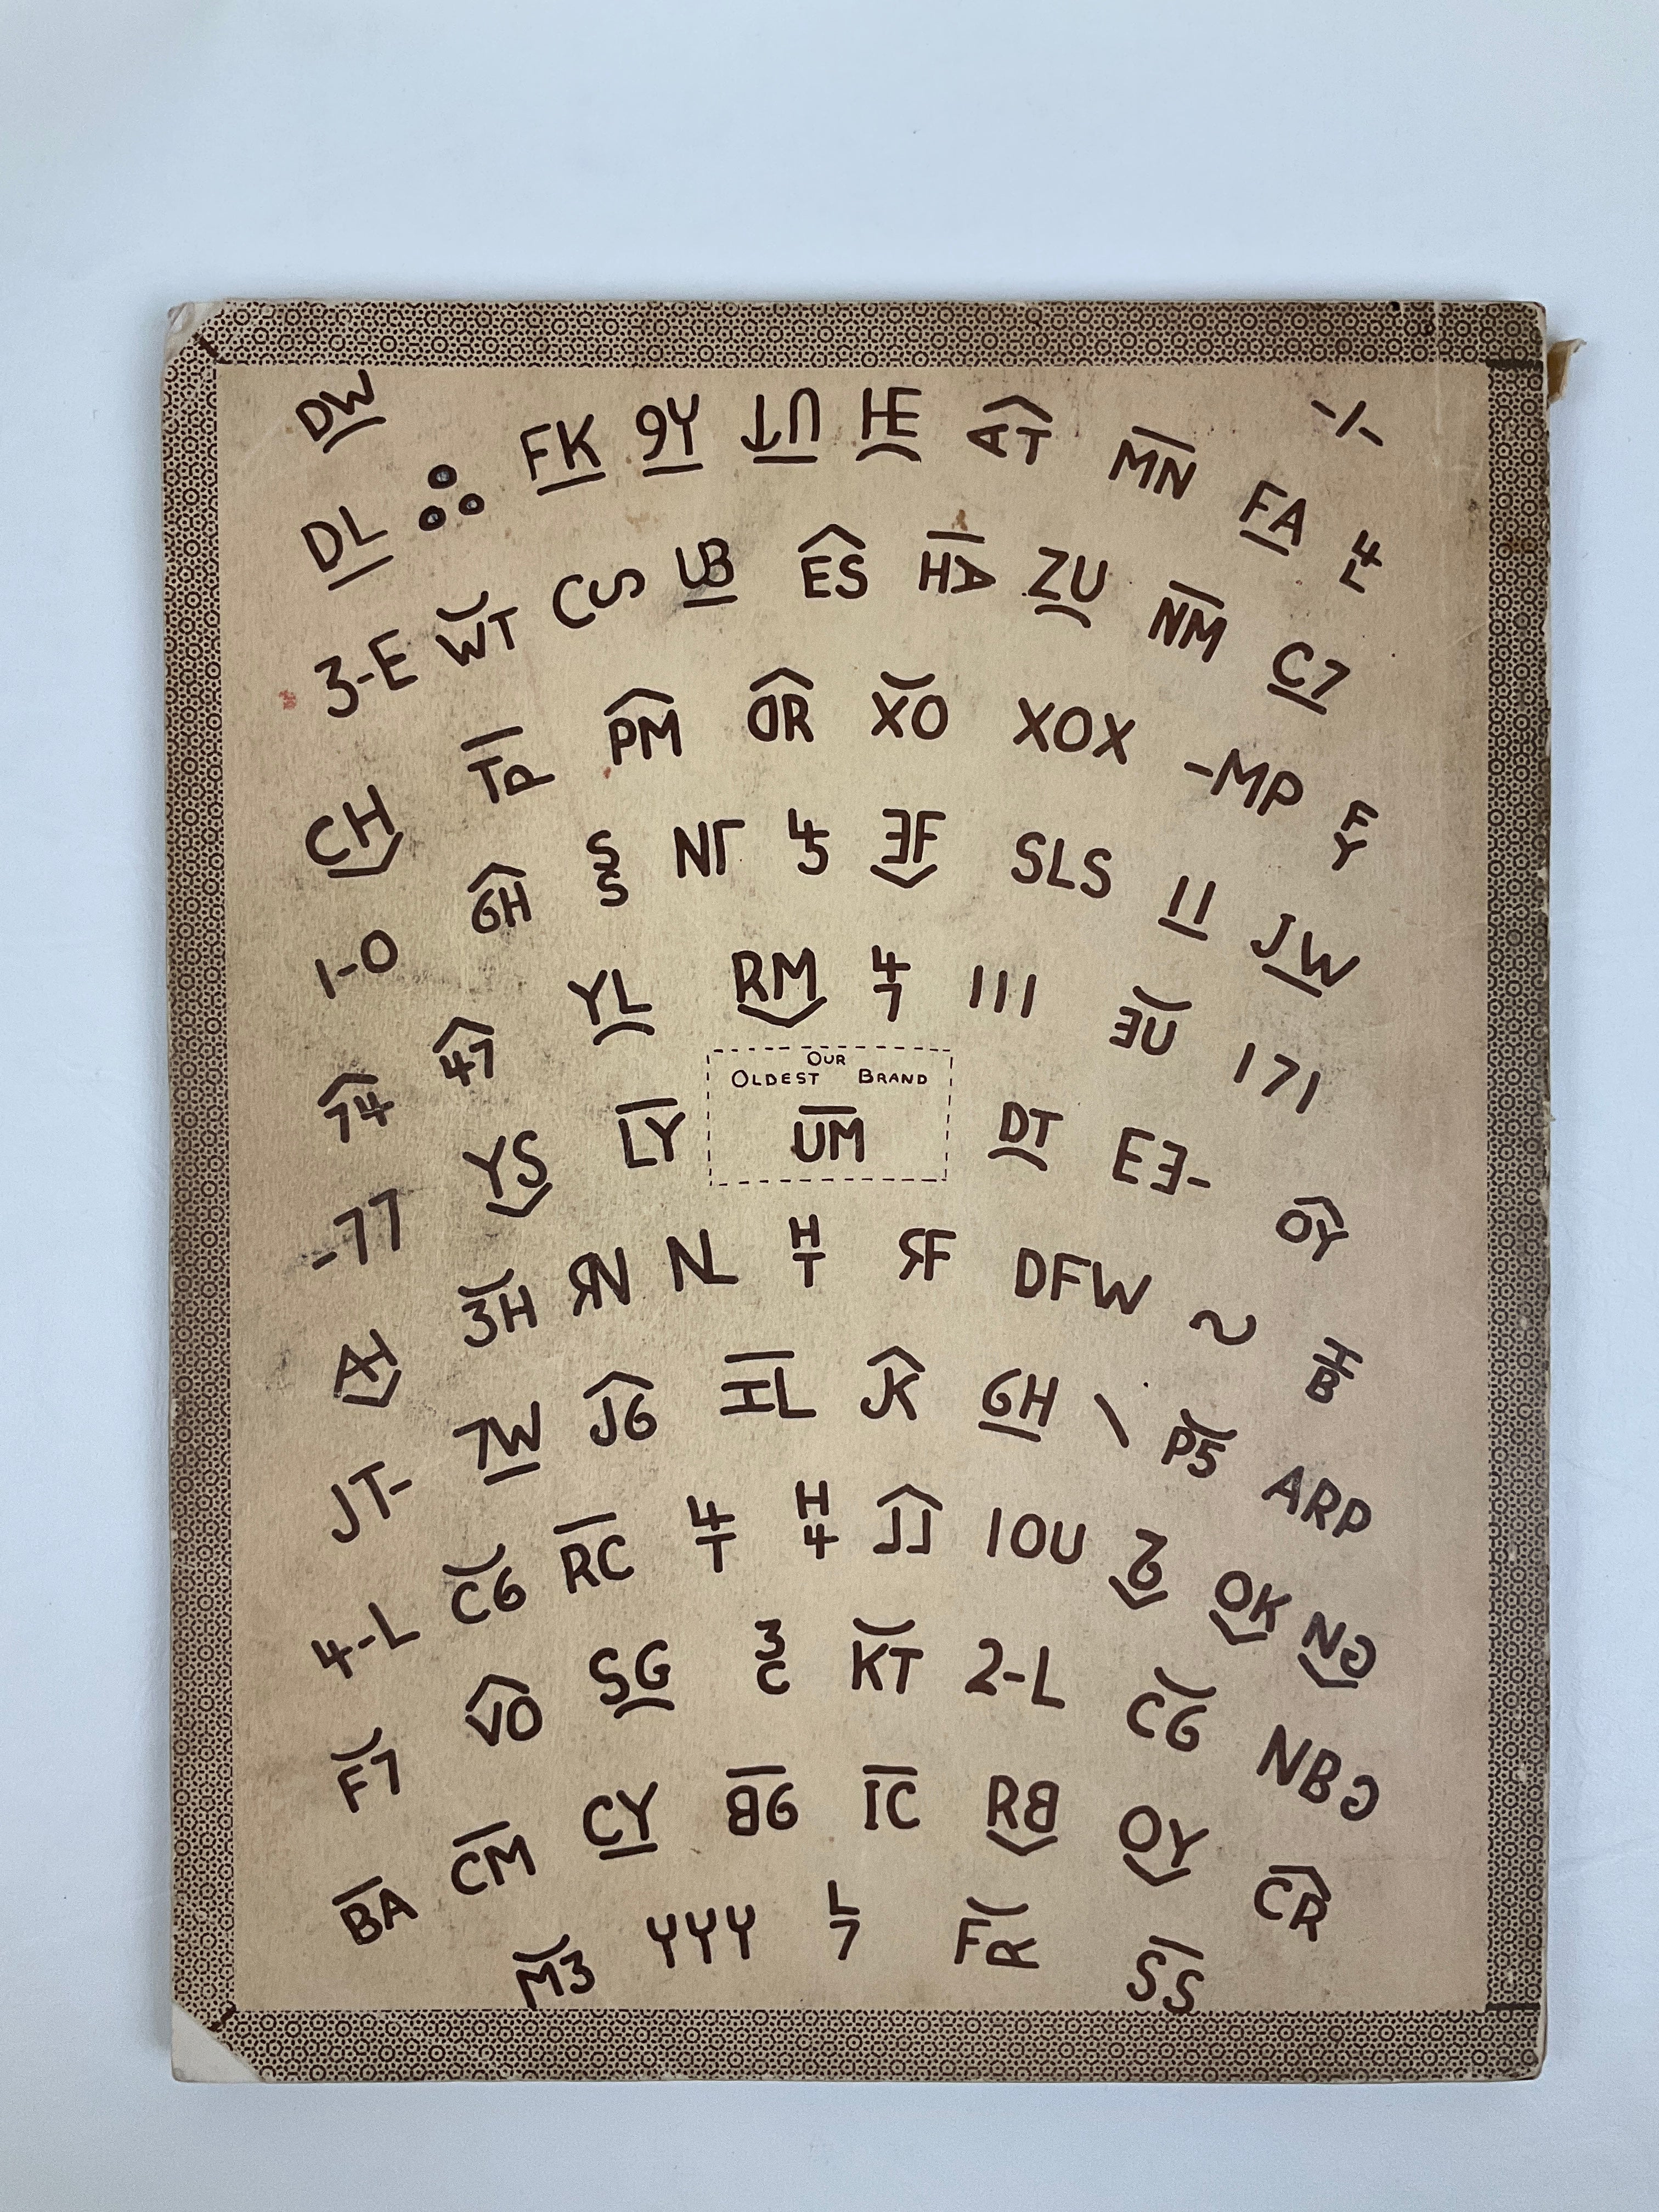 DW
FK 9Y HE AT MN -/-
DL FA 4L
CS UB ES HA ZU NM C7
3-E WT
PM OR XO XOX -MP
TP
CH SS 45 EF SLS FY
6H 11 JW
1-O YL RM 47 111 EU 171
74 47
OUR
OLDEST BRAND
UM
YS LY DT EE-
-77 OY
3H RN NL HT RF DFW
AH HB
7W J6 HL JK GH \ P5 ARP
JT-
C6 RC 4T H4 JJ IOU OK NG
4-L
VO SG 3C KT 2-L CG NBC
F7
CM CY B6 IC RB OY CR
BA
M3 YYY L7 FR SS